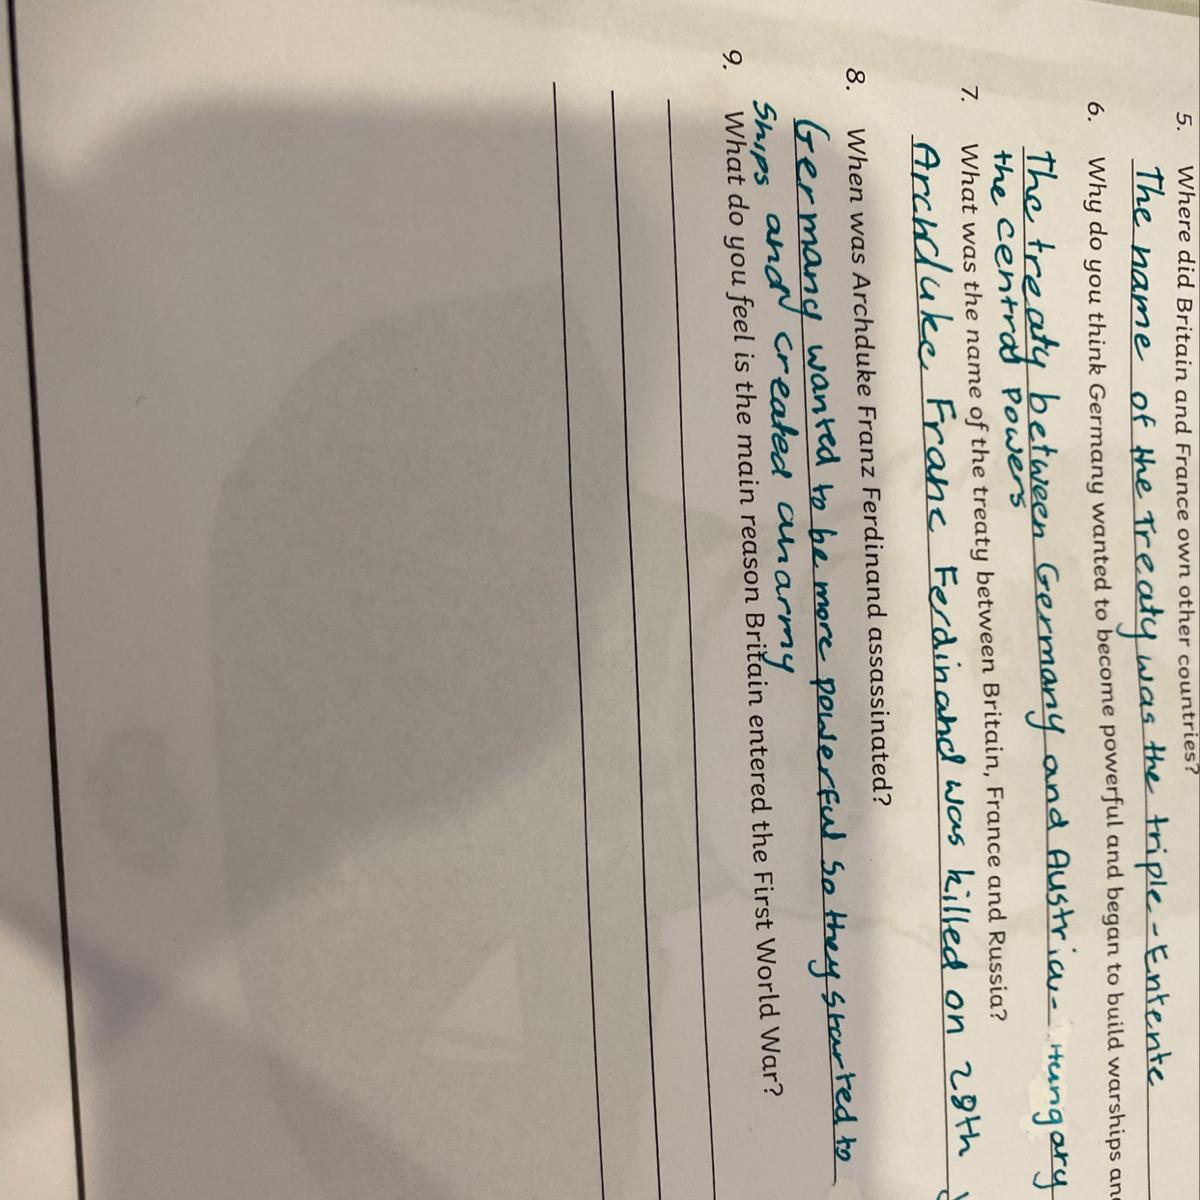 5. Where did Britain and France own other countries?
The name of the Treaty was the triple-Entente
6. Why do you think Germany wanted to become powerful and began to build warships and
The treaty between Germany and Austria-Hungary
the central powers
7. What was the name of the treaty between Britain, France and Russia?
Archduke Franc Ferdinand was killed on 28th
8. When was Archduke Franz Ferdinand assassinated?
Germany wanted to be more powerful so they started to
ships and created an army
9. What do you feel is the main reason Britain entered the First World War?